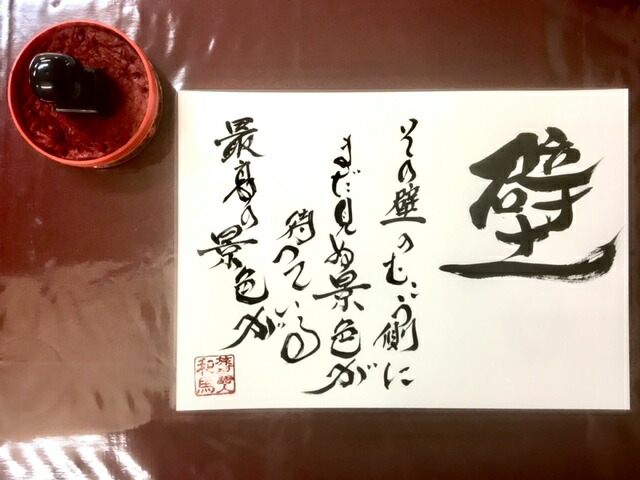 壁
その壁のむこう側に
まだ見ぬ景色が
待っている
最高の景色が
和馬